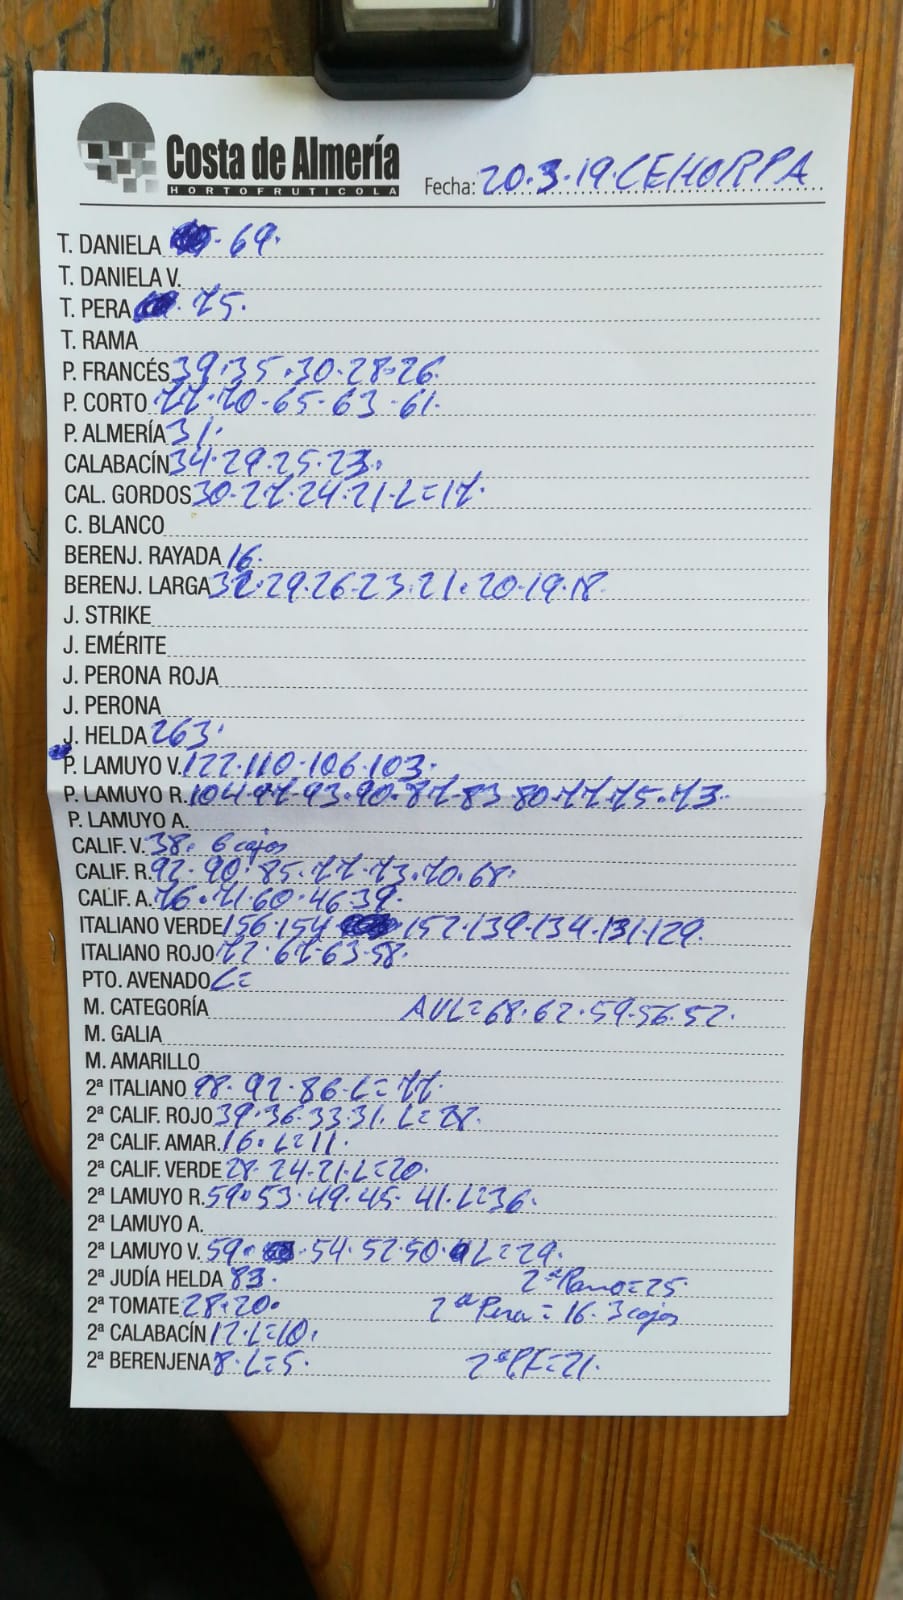 Costa de Almería
HORTOFRUTICOLA
Fecha: 20.3.19.CEHORPA
T. DANIELA 69.
T. DANIELA V.
T. PERA 75.
T. RAMA
P. FRANCÉS 39.35.30.28.26.
P. CORTO 77.70.65.63.61.
P. ALMERÍA 31.
CALABACÍN 34.29.25.23.
CAL. GORDOS 30.27.24.21.L=17.
C. BLANCO
BERENJ. RAYADA 16.
BERENJ. LARGA 32.29.26.23.21.20.19.18.
J. STRIKE
J. EMÉRITE
J. PERONA ROJA
J. PERONA
J. HELDA 263.
P. LAMUYO V. 122.110.106.103.
P. LAMUYO R. 104.97.93.90.87.83.80.77.75.73.
P. LAMUYO A.
CALIF. V. 38. 6 cajas
CALIF. R. 92.90.85.77.73.70.68.
CALIF. A. 76.71.60.46.39.
ITALIANO VERDE 156.154.152.139.134.131.129.
ITALIANO ROJO 72.67.63.58.
PTO. AVENADO L=
M. CATEGORÍA AVL=68.62.59.56.52.
M. GALIA
M. AMARILLO
2ª ITALIANO 98.92.86.L=77.
2ª CALIF. ROJO 39.36.33.31.L=28.
2ª CALIF. AMAR. 16.L=11.
2ª CALIF. VERDE 28.24.21.L=20.
2ª LAMUYO R. 59.53.49.45.41.L=36.
2ª LAMUYO A.
2ª LAMUYO V. 59.54.52.50.L=29.
2ª JUDÍA HELDA 83. 2ª Ramo=25.
2ª TOMATE 28.20. 2ª Pera=16.3 cajas
2ª CALABACÍN 12.L=10.
2ª BERENJENA 8.L=5. 2ª P.F=21.